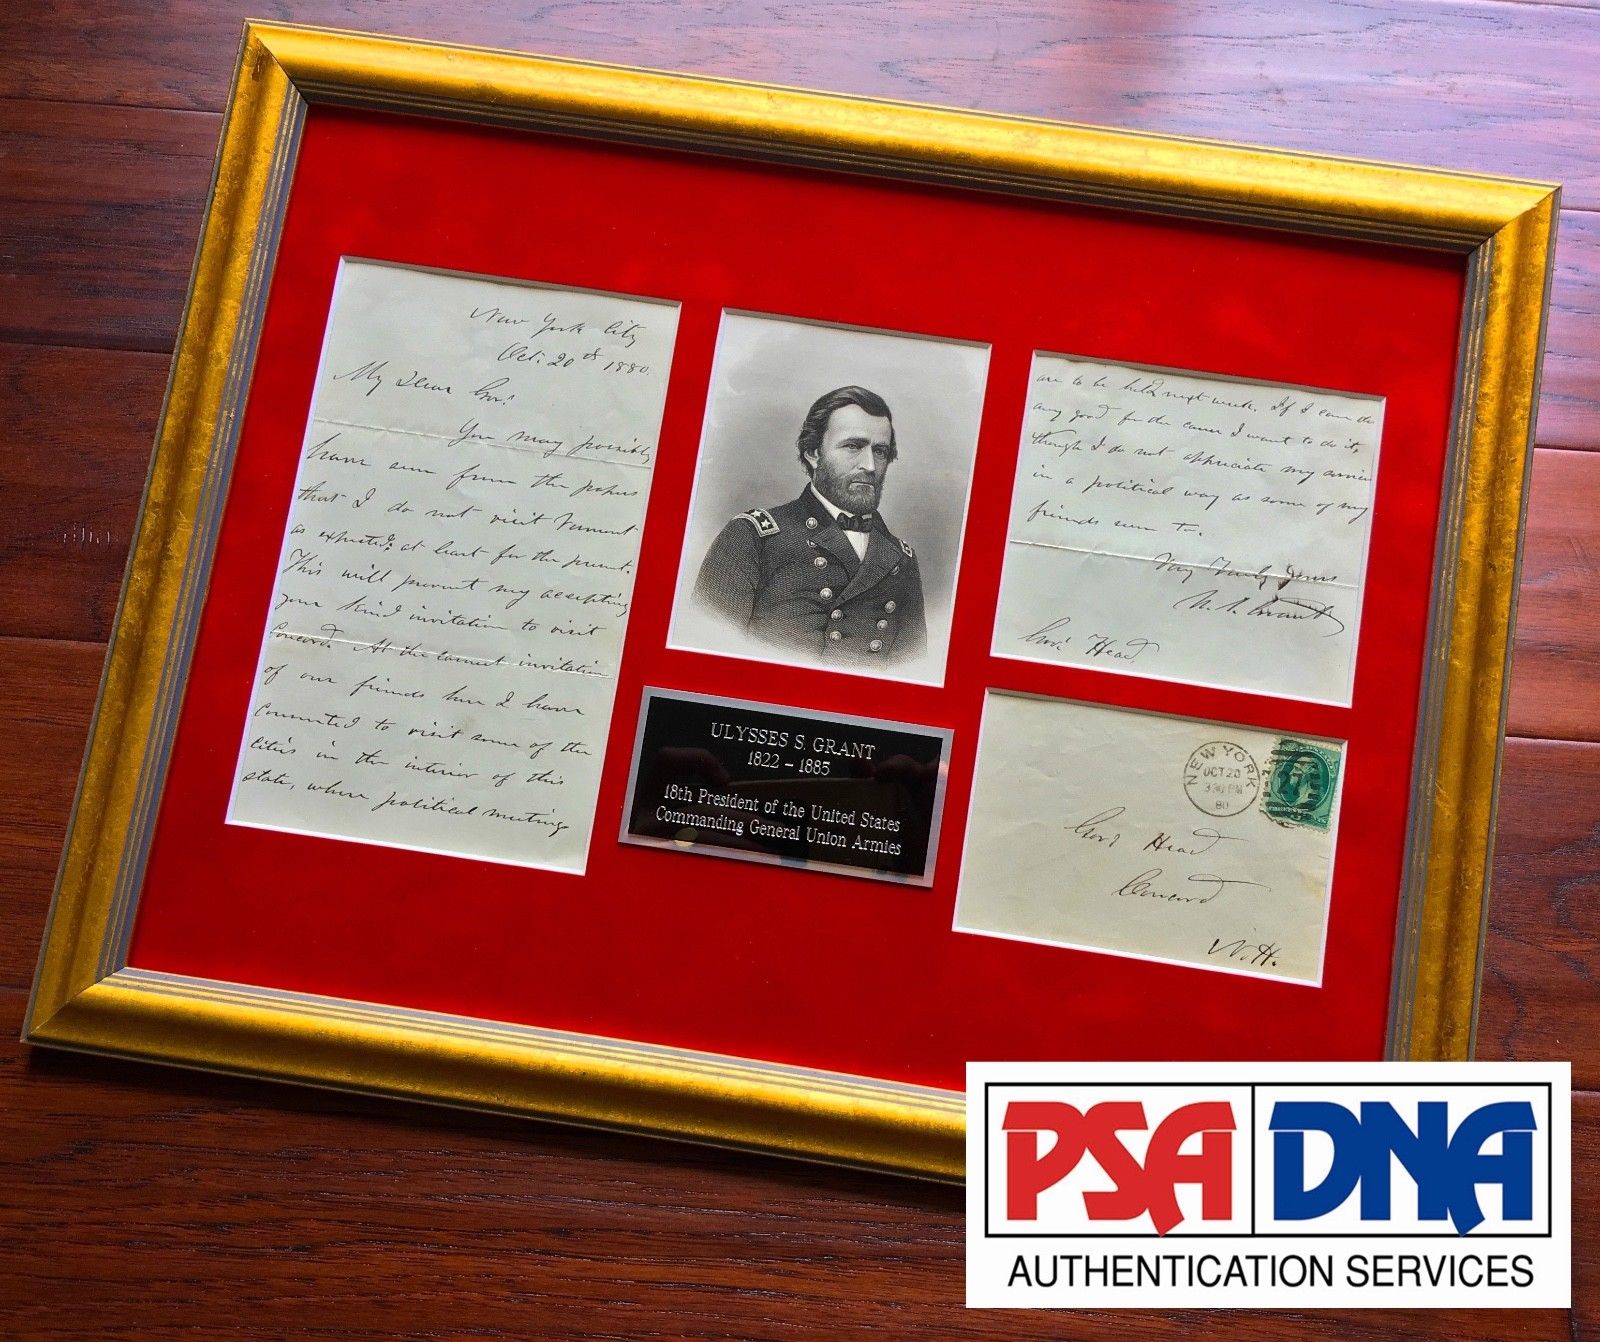 New York City
Oct. 20th 1880.
My Dear Gov.
You may possibly
have seen from the papers
that I do not visit Vermont
as expected; at least for the present.
This will prevent my accepting
your kind invitation to visit
Concord. At the earnest invitation
of our friends here I have
consented to visit some of the
cities in the interior of this
state, where political meetings
are to be held next week. If I can do
any good for the cause I want to do it,
though I do not appreciate my services
in a political way as some of my
friends seem to.
Very Truly Yours
U. S. Grant
Gov. Head
ULYSSES S. GRANT
1822 – 1885
18th President of the United States
Commanding General Union Armies
NEW YORK
OCT 20
330 PM
80
Gov. Head
Concord
N.H.
PSA DNA
AUTHENTICATION SERVICES